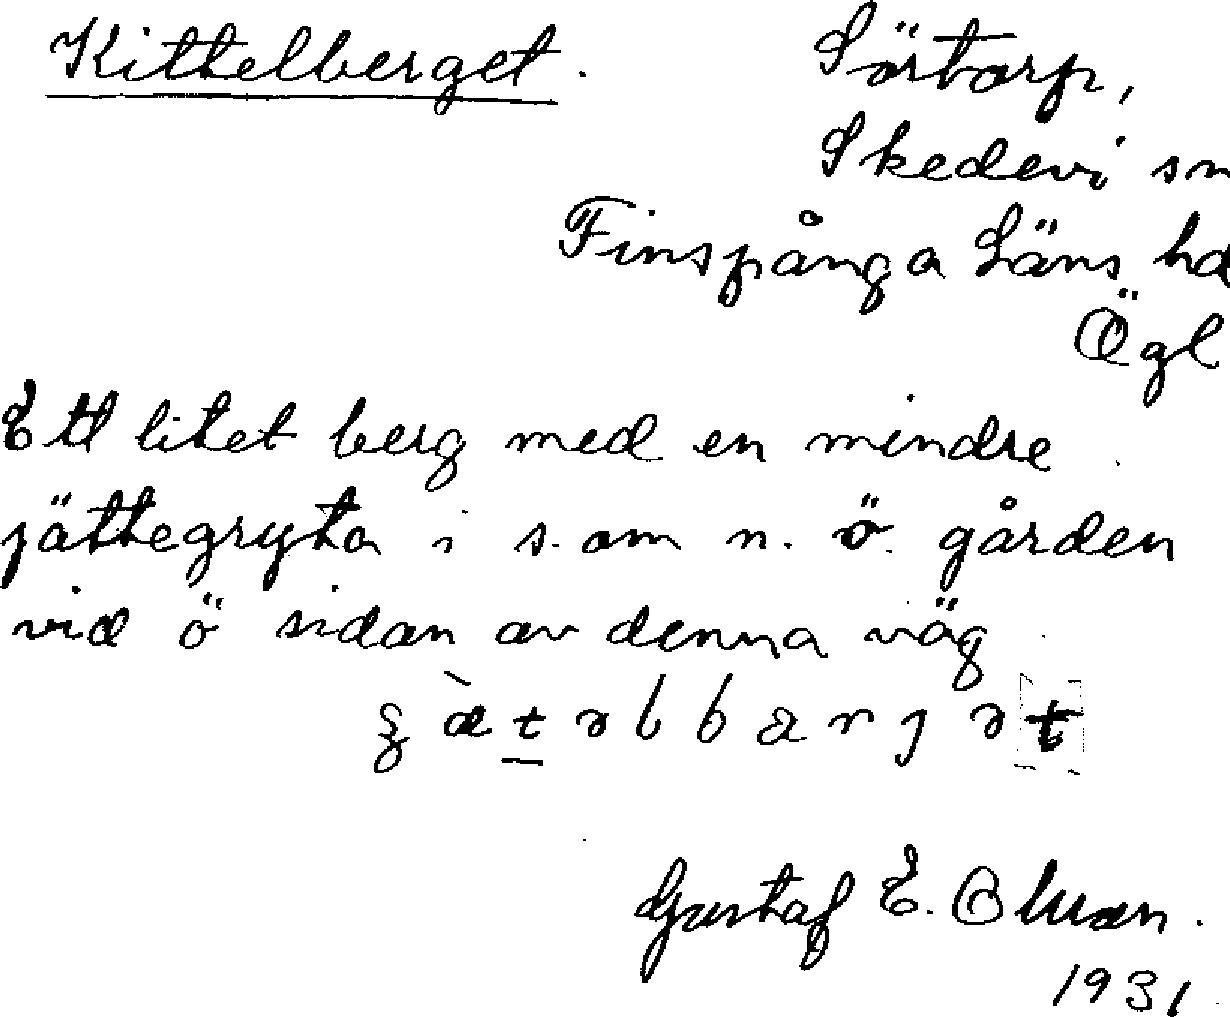 Kittelberget.
Sörtorp,
Skedevi sn
Finspånga Läns hd
Ögl
Ett litet berg med en mindre
jättegryta i s. om n. ö. gården
vid ö sidan av denna väg
Gustaf E.
1931